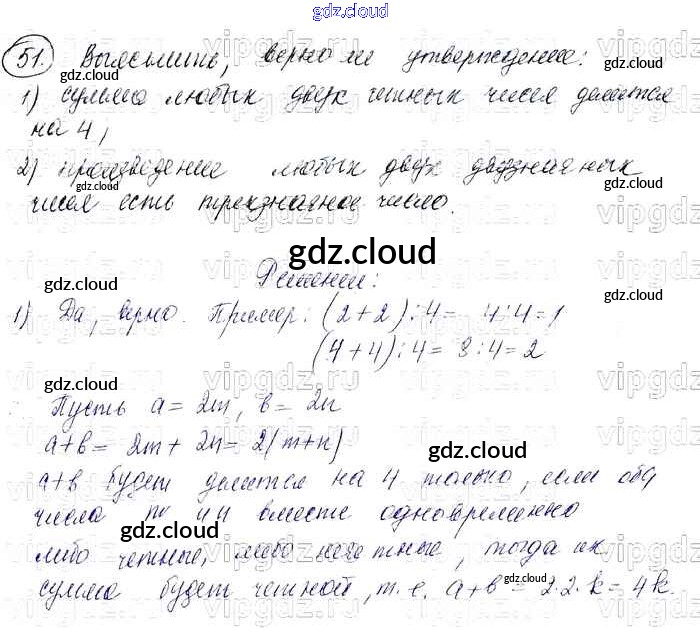 gdz.cloud
51. Выяснить, верно ли утверждение:
1) сумма любых двух чётных чисел делится
на 4;
2) произведение любых двух двузначных
чисел есть трехзначное число.
gdz.cloud
Решение:
1) Да, верно. Пример: (2+2):4= 4:4=1
(4+4):4= 8:4=2
Пусть a=2m, b=2n
a+b= 2m+2n=2(m+n)
a+b будет делится на 4 только, если оба
числа m и n вместе одновременно
либо четные, либо нечетные, тогда их
сумма будет четной, т.е. a+b=2.2.k=4k